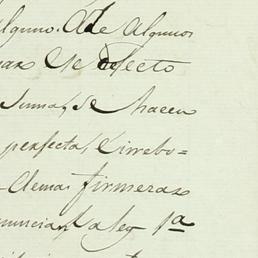 alguno. A de algunos
de defecto
suma, se hacen
perfecta, è irrebo=
demas firmezas
nuncian, la ley 1ª